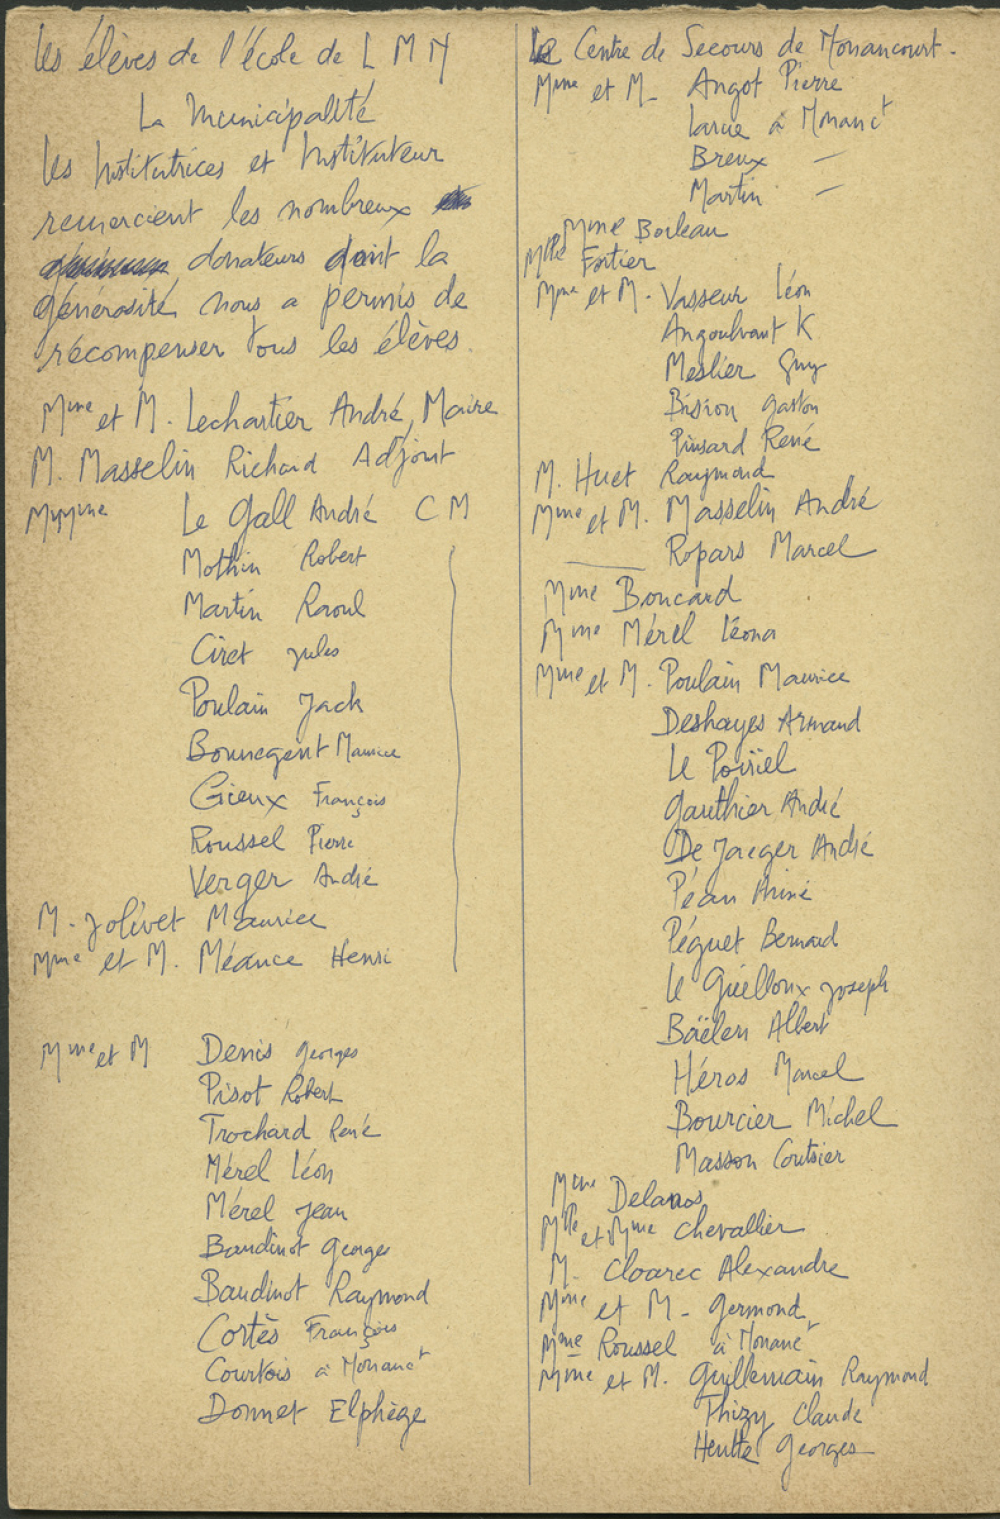 Les élèves de l'école de L M M
La Municipalité
Les Institutrices et Instituteur
remercient les nombreux
donateurs dont la
générosité nous a permis de
récompenser tous les élèves.
Mme et M. Lechartier André, Maire
M. Masselin Richard Adjoint
Le Gall André C M
Mothin Robert
Martin Raoul
Ciret Jules
Poulain Jack
Bonnegent Maurice
Gieux François
Roussel Pierre
Verger André
M. Jolivet Maurice
Mme et M. Méance Henri
Mme et M Denis Georges
Pisot Robert
Trochard René
Mérel Léon
Mérel Jean
Baudinot Georges
Baudinot Raymond
Cortès François
Courtois à Monanct
Donnet Elphège
Le Centre de Secours de Monancourt.
Mme et M. Angot Pierre
Larue à Monanct
Breux —
Martin —
Mme Boileau
Mlle Fortier
Mme et M. Vasseur Léon
Angoulvant K
Meslier Guy
Bision Gaston
Pinsard René
M. Huet Raymond
Mme et M. Masselin André
Ropars Marcel
Mme Boucard
Mme Mérel Léona
Mme et M. Poulain Maurice
Deshayes Armand
Le Poisiel
Gauthier André
De Jaeger André
Péan Aimé
Péguet Bernard
Le Guelloux Joseph
Baëlen Albert
Héros Marcel
Bourcier Michel
Masson Coutsier
Mme Delanos
Mlle et Mme Chevallier
M. Cloarec Alexandre
Mme et M. Germond
Mme Roussel à Monanct
Mme et M. Guillemain Raymond
Thizy Claude
Heutte Georges